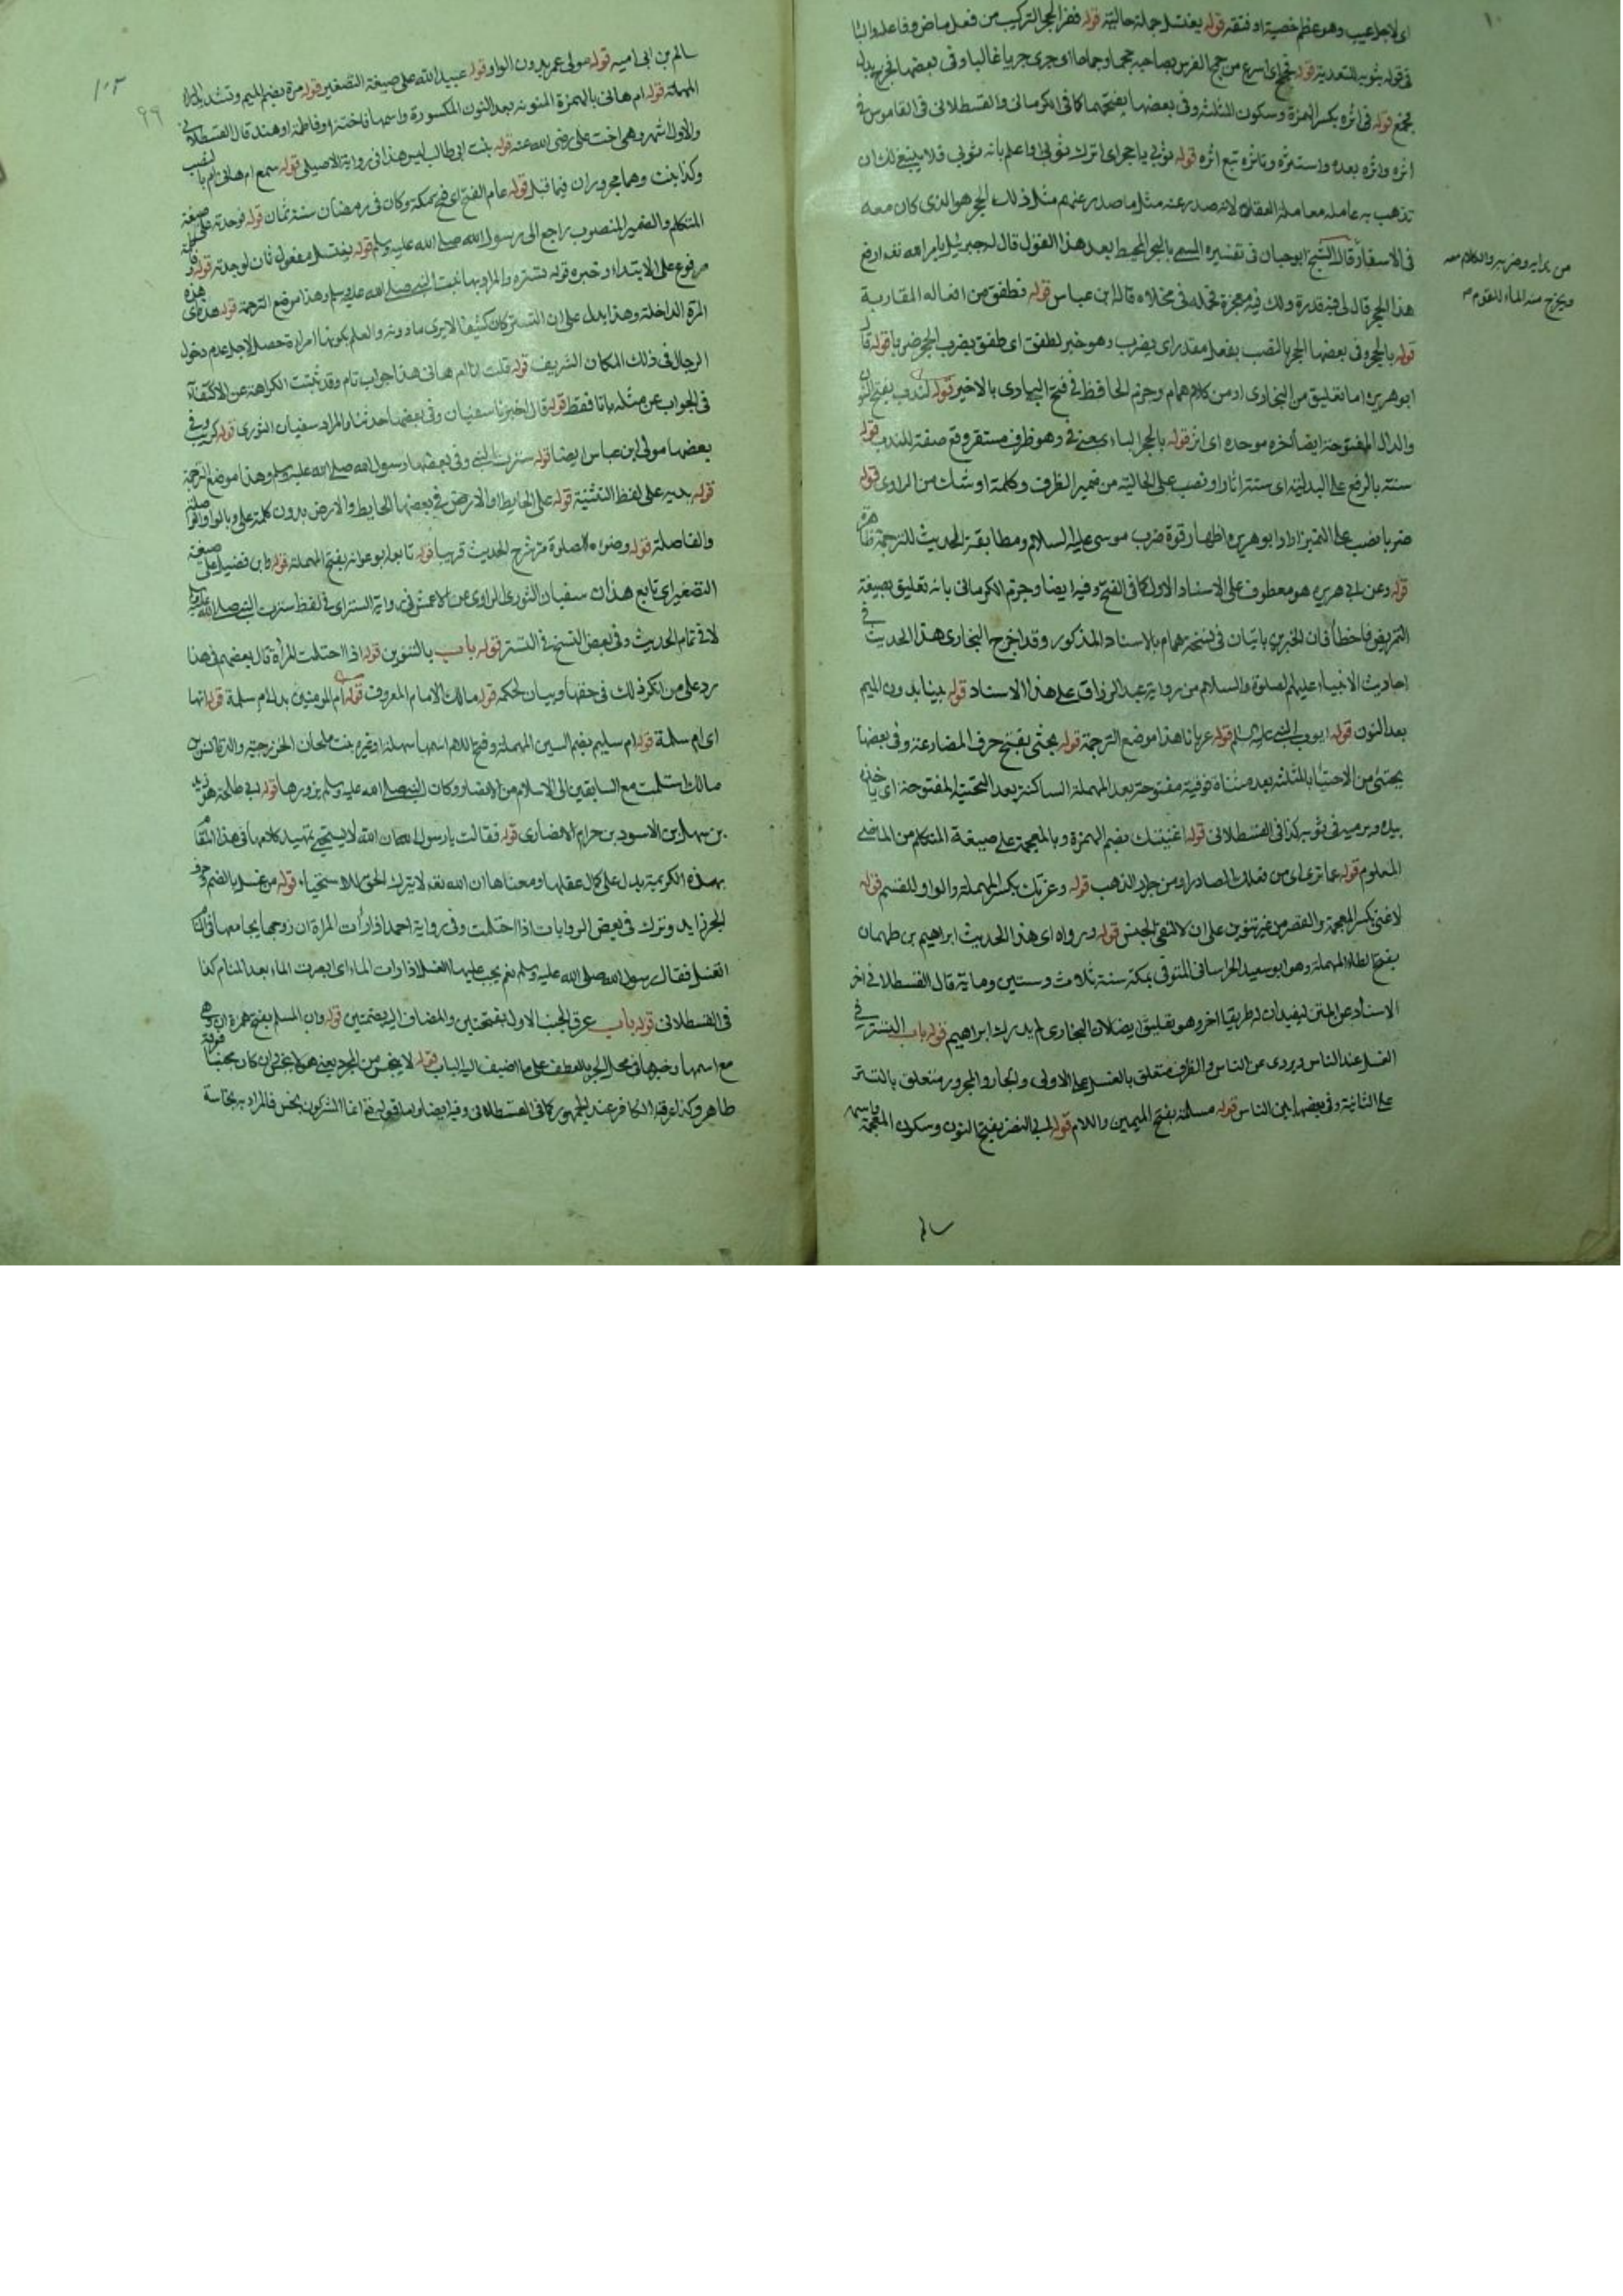 اى لاجل عيب وهو عظم خصية او فتقه قوله يغتسل جملة حالية قوله ففر الحجر التركيب من فعل ماض وفاعل والبا
فى قوله بثوبه للتعدية قوله فجمح اى اسرع من جمح الفرس بصاحبه جمحا وجماحا اى جرى جريا غالبا وفى بعضها فخرج بدل
فجمح قوله فى اثره بكسر الهمزة وسكون المثلثة وفى بعضها بفتحهما كما فى الكرمانى والقسطلانى فى القاموس فى
اثره واثره بعده واستمره وتاثره تبع اثره قوله ثوبى يا حجر اى اترك ثوبى واعلم بانه ثوبى فلا ينبغى لك ان
تذهب به عامله معاملة العقلاء لانه صدر عنه مثل ما صدر عنهم مثل ذلك الحجر هو الذى كان معه
فى الاسفار قال الشيخ ابو حيان فى تفسيره المسمى بالبحر المحيط بعد هذا القول قال له جبريل بامر الله تعالى ارفع
هذا الحجر قال لى فيه قدرة ولك فيه معجزة فحمله فى مخلاته قاله ابن عباس قوله فطفق من افعال المقاربة
قوله بالحجر وفى بعضها الحجر بالنصب بفعل مقدر اى يضرب وهو خبر لطفق اى طفق يضرب الحجر ضربا قوله قال
ابو هريرة اما تعليق من البخارى او من كلام همام وجزم الحافظ فى فتح البارى بالاخير قوله لندب بفتح النون
والدال المفتوحة ايضا آخره موحده اى اثر قوله بالحجر الباء بمعنى فى وهو ظرف مستقر وقع صفة للندب قوله
ستة بالرفع على البدلية اى ستة اثار او نصب على الحالية من ضمير الظرف وكلمة او شك من الراوى قوله
ضربا نصب على التميز اراد ابو هريرة اظهار قوة ضرب موسى عليه السلام ومطابقة الحديث للترجمة ظاهرة
قوله وعن ابى هريرة هو معطوف على الاسناد الاول كما فى الفتح وفيه ايضا وجزم الكرمانى بانه تعليق بصيغة
التمريض فاخطأ فان الخبرين ثابتان فى نسخة همام بالاسناد المذكور وقد اخرج البخارى هذا الحديث فى
احاديث الانبياء عليهم الصلوة والسلام من رواية عبد الرزاق على هذا الاسناد قوله بينا بدون الميم
بعد النون قوله ايوب النبى عليه السلم قوله عريانا هذا موضع الترجمة قوله يحتثى بفتح حرف المضارعة وفى بعضها
يحتثى من الاحتثاء بالمثلثة بعد مثناة فوقية مفتوحة بعد المهملة الساكنة بعد التحتية المفتوحة اى ياخذ
بيده ويرميه فى ثوبه كذا فى القسطلانى قوله اغنيتك بضم الهمزة وبالمعجمة على صيغة المتكلم من الماضى
المعلوم قوله عما ترى اى من تلك المصادر او من جراد الذهب قوله وعزتك بكسر المهملة والواو للقسم قوله
لا غنى بكسر المعجمة والقصر من غير تنوين على ان لا لنفى الجنس قوله ورواه اى هذا الحديث ابراهيم بن طهمان
بفتح الطاء المهملة وهو ابو سعيد الخراسانى المتوفى بمكة سنة ثلاث وستين وماية قال القسطلانى اخر
الاسناد عن المتن ليفيد ان له طريقا اخر وهو تعليق ايضا لان البخارى لم يدرك ابراهيم قوله باب التستر فى
الغسل عند الناس ويروى من الناس والظرف متعلق بالغسل على الاولى والجار والمجرور متعلق بالتستر
على الثانية وفى بعضها بين الناس قوله مسلمة بفتح الميمين واللام قوله ابى النضر بفتح النون وسكون المعجمة باسمه
من بدايه وضربه والكلام معه
ويخرج منه الماء للقوم
سالم
١٠٣
٩٩
سالم بن ابى اميه قوله مولى عمر بدون الواو قوله عبيد الله على صيغة التصغير قوله مرة بضم الميم وتشديد الراء
المهملة قوله ام هانى بالهمزة المنونة بعد النون المكسورة واسمها فاختة او فاطمة او هند قال القسطلانى
والاول اشهر وهى اخت على رضى الله عنه قوله بنت ابى طالب ليس هذا فى رواية الاصيلى قوله سمع ام هانى ام بالنصب
وكذا بنت وهما مجروران فيما قبل قوله عام الفتح اى فتح مكة وكان فى رمضان سنة ثمان قوله فوجدته على صيغة
المتكلم والضمير المنصوب راجع الى رسول الله صلى الله عليه وسلم قوله يغتسل مفعول ثان لوجدته قوله وفاطمة
مرفوع على الابتداء وخبره قوله تستره والمراد بها بنت النبى صلى الله عليه وسلم وهذا موضع الترجمة قوله هذه اى هذه
المرة الداخلة وهذا يدل على ان الستر كان كثيفا لا يرى ما دونه والعلم بكونها امراة حصل لاجل عدم دخول
الرجال فى ذلك المكان الشريف قوله قلت انا ام هانى هذا جواب تام وقد ثبتت الكراهة عن الاكتفاء
فى الجواب عن مثله بانا فقط قوله قال اخبرنا سفيان وفى بعضها حدثنا والمراد سفيان الثورى قوله كريب وفى
بعضها مولى ابن عباس ايضا قوله سترت النبى وفى بعضها رسول الله صلى الله عليه وسلم وهذا موضع الترجمة
قوله بيديه على لفظ التثنية قوله على الحايط او الارض وفى بعضها الحايط والارض بدون كلمة على وبالواو الواصلة
والفاصلة قوله وضوءه للصلوة مر شرح الحديث قريبا قوله تابعه ابو عوانه بفتح المهملة قوله وابن فضيل على صيغة
التصغير اى تابع هذان سفيان الثورى الراوى عن الاعمش فى رواية الستر اى فى لفظ سترت النبى صلى الله عليه وسلم
لا فى تمام الحديث وفى بعض النسخ فى التستر قوله باب بالتنوين قوله اذا احتلمت المراة قال بعضهم فى هذا
رد على من انكر ذلك فى حقها وبيان لحكمه قوله مالك الامام المعروف قوله ام المومنين بدل ام سلمة قوله انها
اى ام سلمة قوله ام سليم بضم السين المهملة وفتح اللام اسمها سهلة او غيره بنت ملحان الخزرجية والدة انس بن
مالك اسلمت مع السابقين الى الاسلام من الانصار وكان النبى صلى الله عليه وسلم يزورها قوله ابى طلحة هو زيد
بن سهل بن الاسود بن حرام الانصارى قوله فقالت يا رسول الله ان الله لا يستحيى تمهيد كلامها فى هذا المقام
بهذه الكريمة يدل على كمال عقلها ومعناها ان الله تعالى لا يترك الحق للاستحياء قوله من غسل بالضم وحرف
الجر زايد وترك فى بعض الروايات اذا احتلمت وفى رواية احمد اذا رأت المراة ان زوجها يجامعها فى المنام
اتغتسل فقال رسول الله صلى الله عليه وسلم نعم يجب عليها الغسل اذا رات الماء اى ابصرت الماء بعد المنام كذا
فى القسطلانى قوله باب عرق الجنب الاول بفتحتين والمضاف اليه بضمتين قوله وان المسلم بفتح همزة ان وهى
مع اسمها وخبرها فى محل الجر بالعطف على ما اضيف اليه الباب قوله لا ينجس من المجرد يعنى هو لا ينجس وان كان جنبا فعرقه
طاهر وكذا عرق الكافر عند الجمهور كما فى القسطلانى وفيه ايضا واما قوله تعالى انما المشركون نجس فالمراد به نجاسة